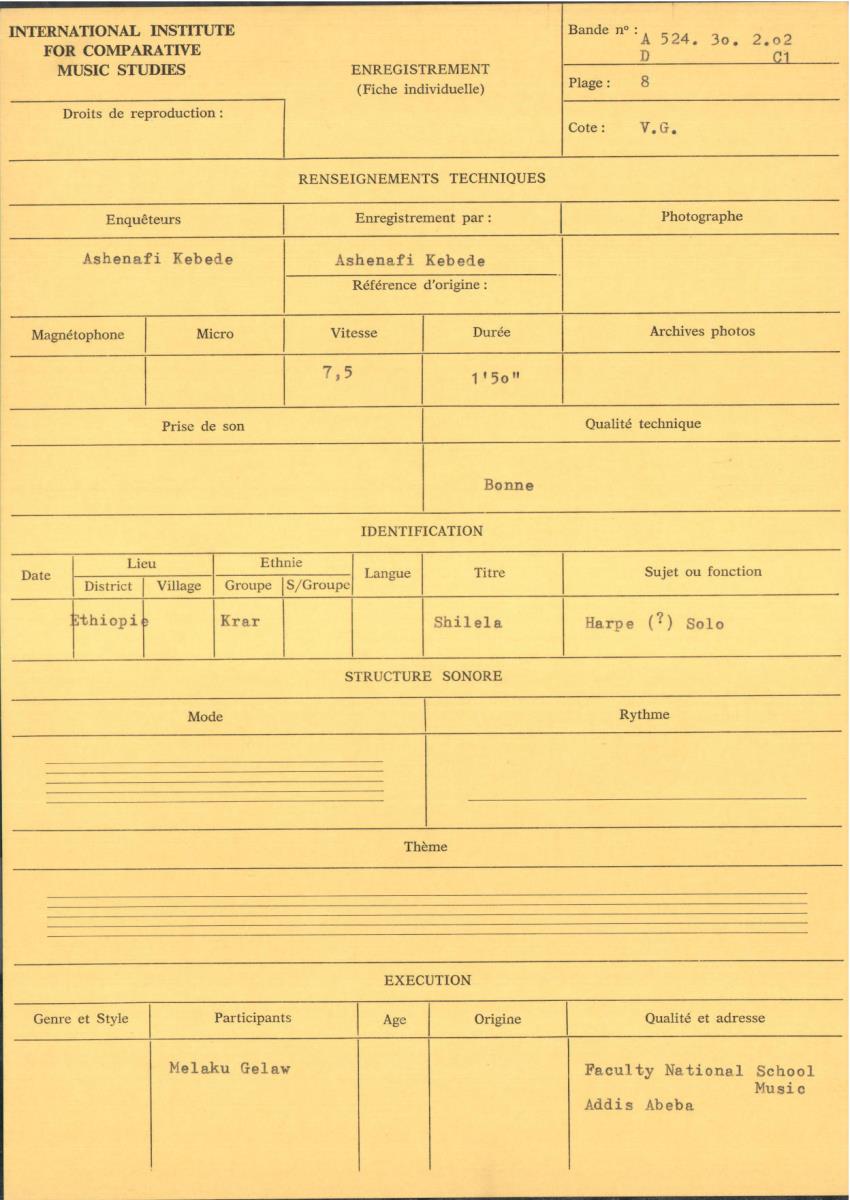 INTERNATIONAL INSTITUTE
FOR COMPARATIVE
MUSIC STUDIES
Droits de reproduction :
ENREGISTREMENT
(Fiche individuelle)
Bande nº : A 524. 3o. 2.o2
D C1
Plage : 8
Cote : V.G.
RENSEIGNEMENTS TECHNIQUES
Enquêteurs
Enregistrement par :
Photographe
Ashenafi Kebede
Ashenafi Kebede
Référence d'origine :
Magnétophone
Micro
Vitesse
Durée
Archives photos
7,5
1'5o"
Prise de son
Qualité technique
Bonne
IDENTIFICATION
Date
Lieu
Ethnie
Langue
Titre
Sujet ou fonction
District
Village
Groupe
S/Groupe
Ethiopie
Krar
Shilela
Harpe (?) Solo
STRUCTURE SONORE
Mode
Rythme
Thème
EXECUTION
Genre et Style
Participants
Age
Origine
Qualité et adresse
Melaku Gelaw
Faculty National School
Music
Addis Abeba